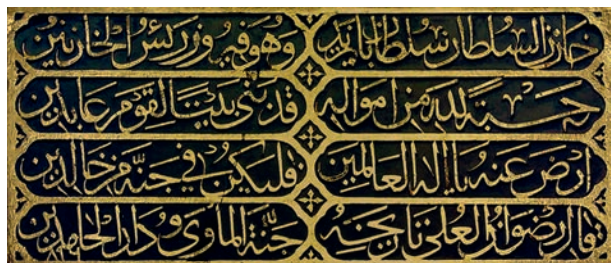 خازن السلطان سلطان بايزيد وهو فيه وزر رئس الخازنين
حسبة لله من امواله قد بنى بيتا لقوم عابدين
ارض عنه يا اله العالمين فليكن في جنة من خالدين
قال رضوان العلى تاريخه جنة المأوى ودار الحامدين